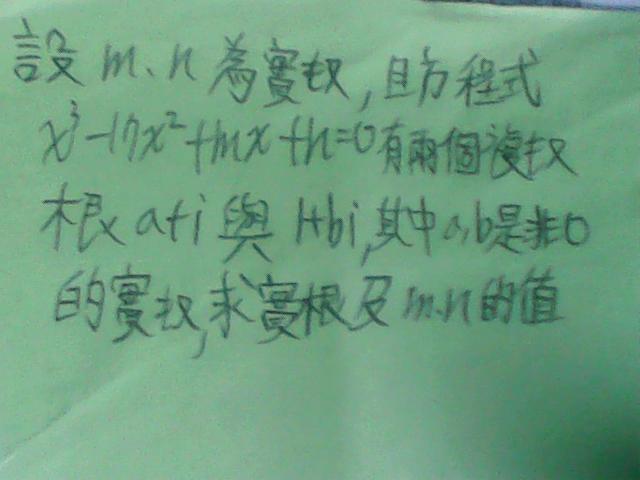 設m、n為實数,且方程式
x³-17x²+mx+n=0有兩個複数
根a+i與1+bi,其中a,b是非0
的實数,求實根及m.n的值